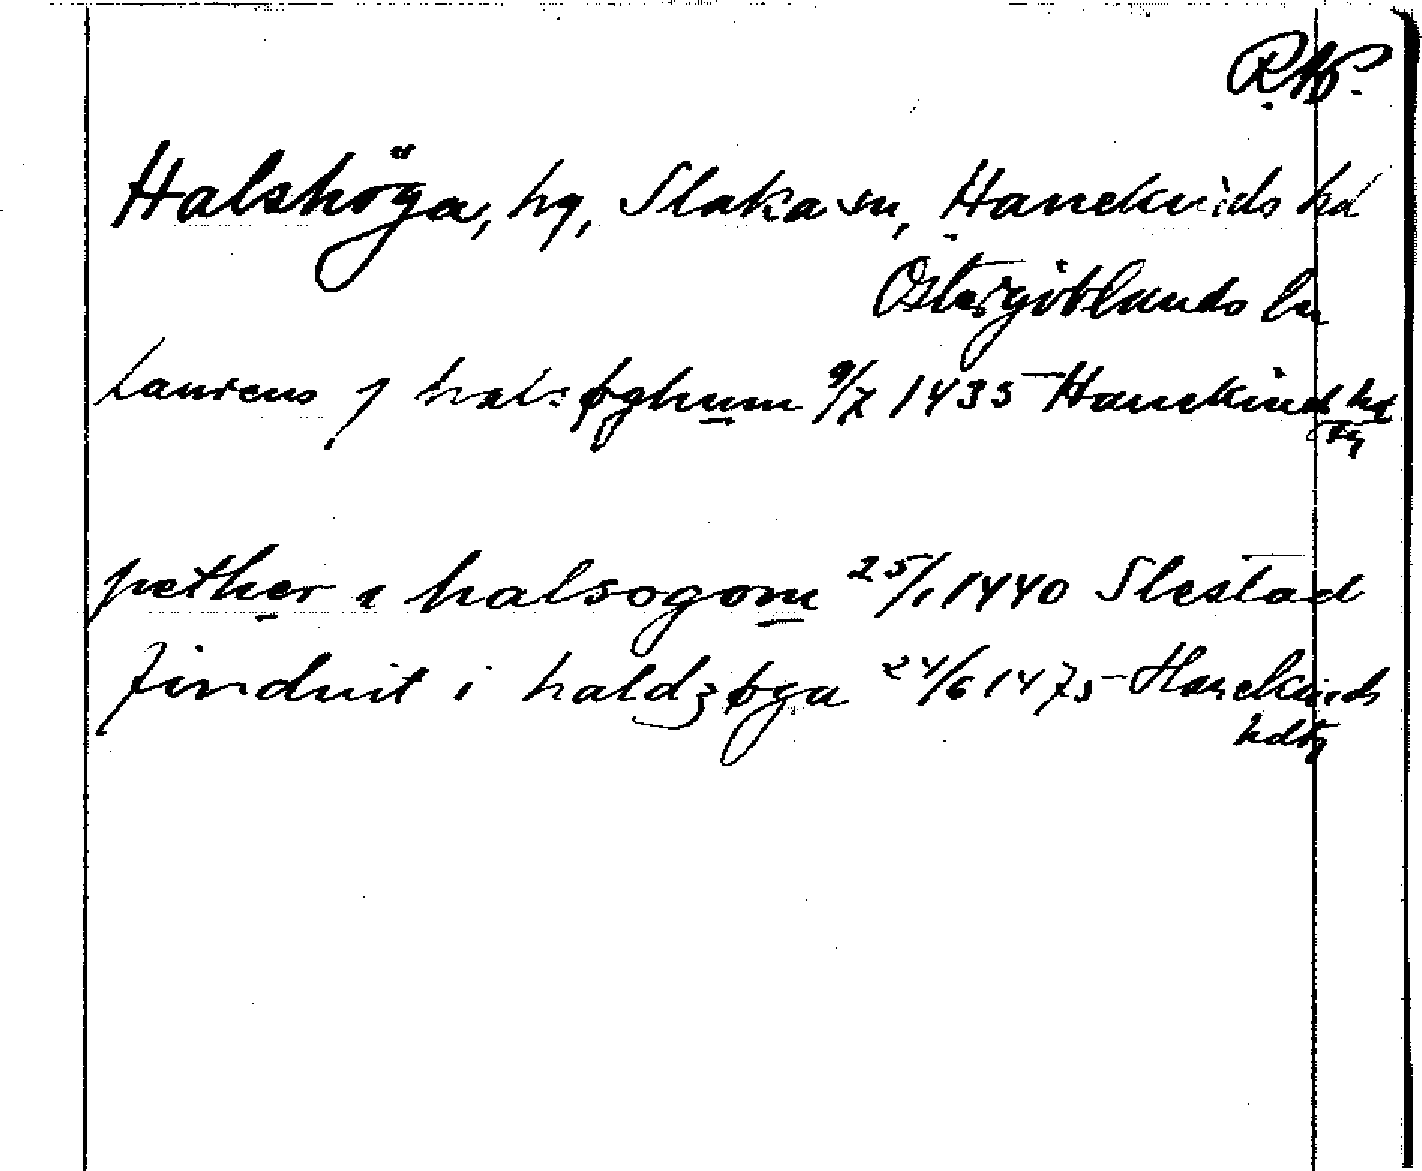 RAP.
Halshöga, hg, Slaka sn, Hanekinds hd
Östergötlands ln
laurens j halsøghum 9/7 1435 Hanekinds hd
tg
pether i halsogom 25/1 1440 Slestad
findvit i haldzøga 24/6 1475 Hanekinds
hdtg